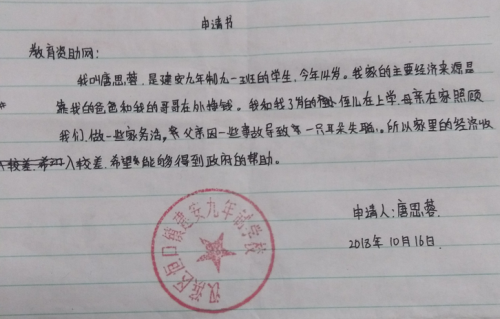 申请书
教育资助网:
我叫唐思蓉,是建安九年制九一3班的学生,今年14岁。我家的主要经济来源是
靠我的爸爸和我的哥哥在外挣钱。我和我3岁的侄儿在上学,母亲在家照顾
我们,做一些家务活,父亲因一些事故导致一只耳朵失聪。所以家里的经济收
入较差.希望能够得到政府的帮助。
申请人:唐思蓉.
2018年10月16日.
汉滨区恒口镇建安九年制学校